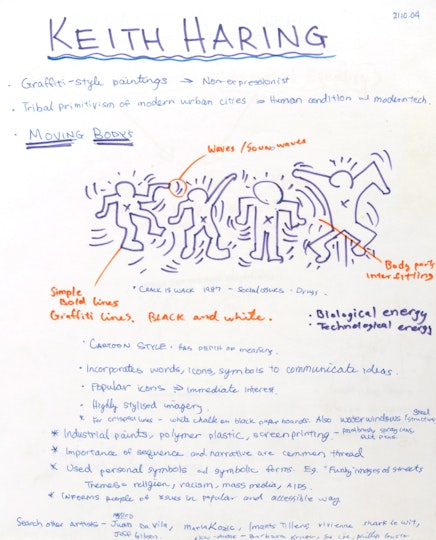 KEITH HARING
21.10.04
· Graffiti-style paintings → Non-expressionist
· Tribal primitivism of modern urban cities = Human condition modern tech.
· MOVING BODYS
WAVES / SOUNDWAVES
Body parts
inter fitting
Simple
Bold lines
Graffiti lines. BLACK and white.
* CRACK IS WACK 1987 - Social issues - Drugs.
• Biological energy
• Technological energy
· CARTOON STYLE - has DEPTH OR meaning.
· Incorporates words, icons, symbols to communicate ideas.
· Popular icons ⇒ immediate interest.
· Highly stylised imagery.
* For crisper lines - white chalk on black paper boards. Also
* Industrial paints, polymer plastic, screenprinting - spray cans,
* Importance of sequence and narrative are common thread
* Used personal symbols and symbolic forms. Eg. "Funky" images of streets
Themes = religion, racism, mass media, AIDS.
* Informs people of issues in popular and accessible way.
Search other artists - Juan Davila, Maria Kozic, Imants Tillers, Vivienne Shark LeWitt,
Jeff Gibson. Barbara Kruger, Sol Philip Guston.